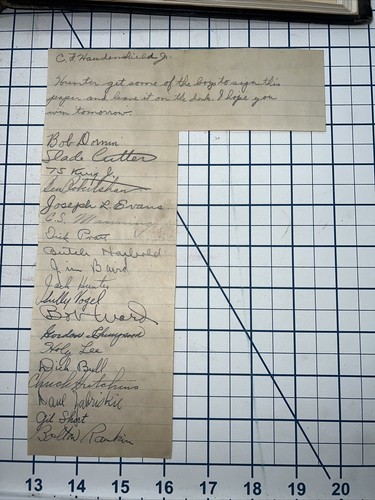 Hunter get some of the boys to sign this
paper and leave it on the desk. I hope you
win tomorrow.
Bob Dornin
Slade Cutter
Joseph R. Evans
C.S.
Dick Pratt
Butch Harbold
Jim Baird
Jack Hunter
Sully Vogel
Bob Ward
Gordon Thompson
Holy Lee
Dick Bull
Chuck Hutchins
Dave Zabriskie
Gil Short
Rankin
13 14 15 16 17 18 19 20